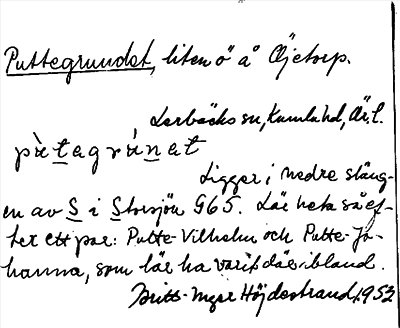 Puttegrundet, liten ö å Öjetorp.
Lerbäcks sn, Kumla hd, Ör. l.
pùtagrùnat
Ligger i nedre släng-
en av S i Storsjön G65. Lär heta så ef-
ter ett par: Putte-Vilhelm och Putte-Jo-
hanna, som lär ha varit där ibland.
Britt-Inger Höjdestrand, 1953